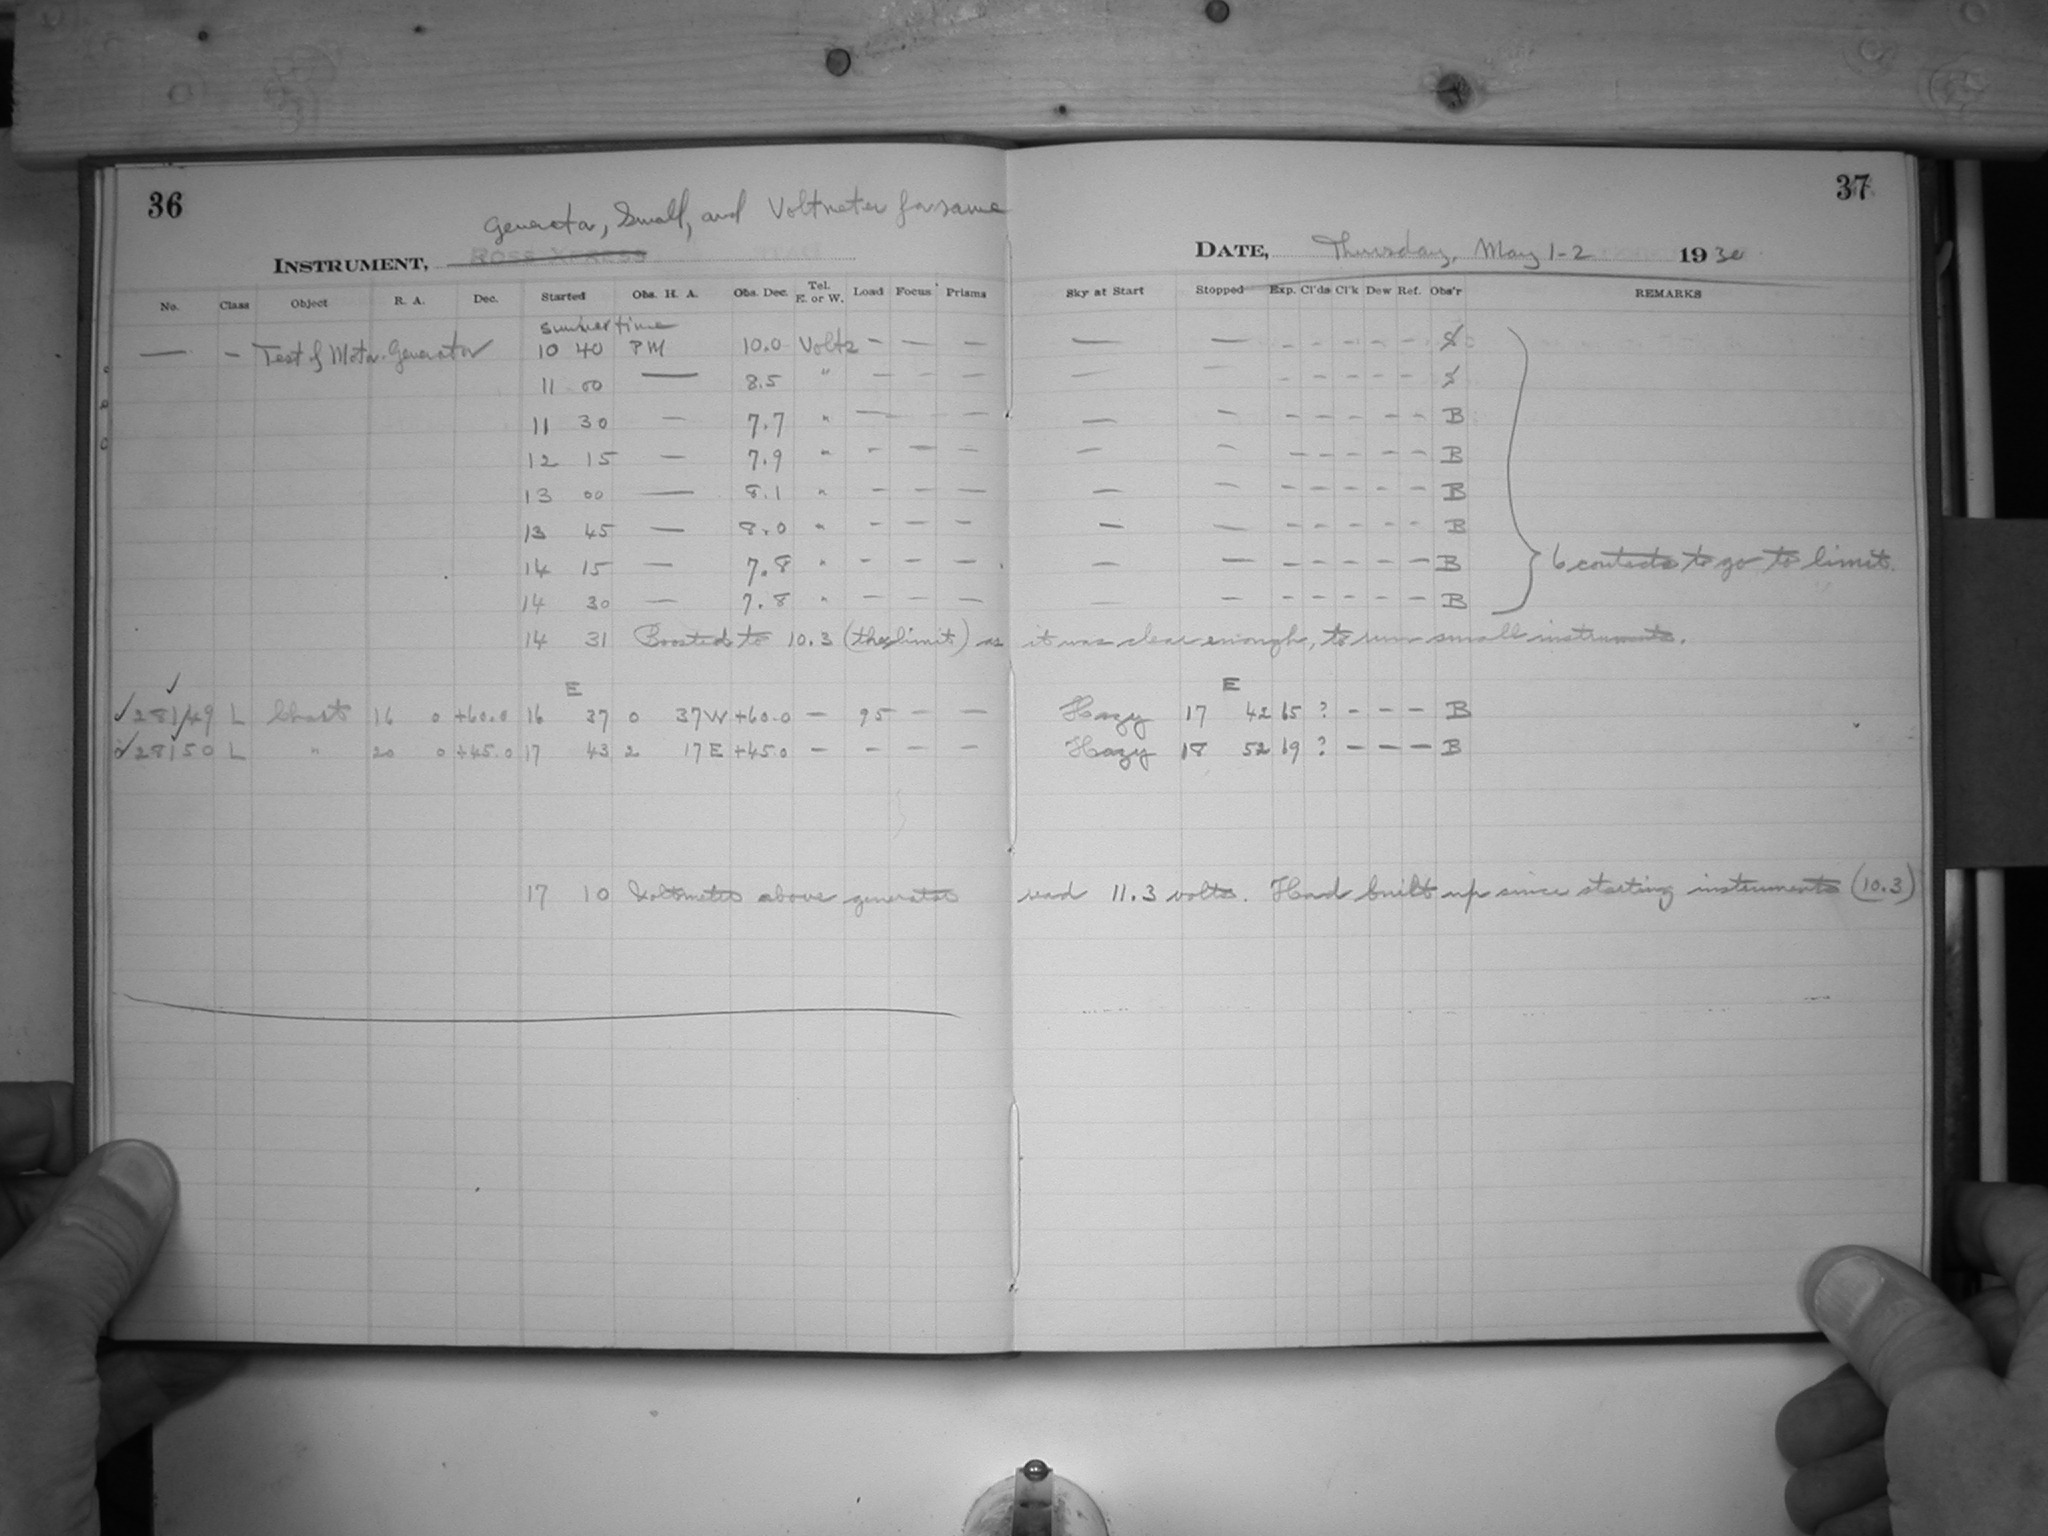 36
37
Generator, Small, and Voltmeter for same
INSTRUMENT, ROSS XPRESS
DATE, Thursday, May 1-2 1930
No. Class Object R. A. Dec. Started Obs. H. A. Obs. Dec. Tel. E. or W. Load Focus Prisms Sky at Start Stopped Exp. Cl'ds Cl'k Dew Ref. Obs'r REMARKS
Summer time
— – Test of Motor-Generator 10 40 PM 10.0 Volts – — — — — – – – – –
11 00 — 8.5 " — – — — — – – – – –
11 30 — 7.7 " — – — — – – – – – – B
12 15 — 7.9 " – — — — – – – – – – B
13 00 — 8.1 " – — — — – – – – – – B
13 45 — 8.0 " – — – — — – – – – – B
14 15 — 7.8 " – – — — — – – – – – B
14 30 — 7.8 " – – — — – – – – – – B
6 contacts to go to limit.
14 31 Boosted to 10.3 (the limit) as it was clear enough, to run small instruments.
E E
28149 L Chart 16 0 +60.0 16 37 0 37W +60.0 – 95 – – Hazy 17 42 65 ? – – – B
28150 L " 20 0 +45.0 17 43 2 17E +45.0 – – – – Hazy 18 52 69 ? – – – B
17 10 Voltmeter above generator read 11.3 volts. Had built up since starting instruments (10.3)